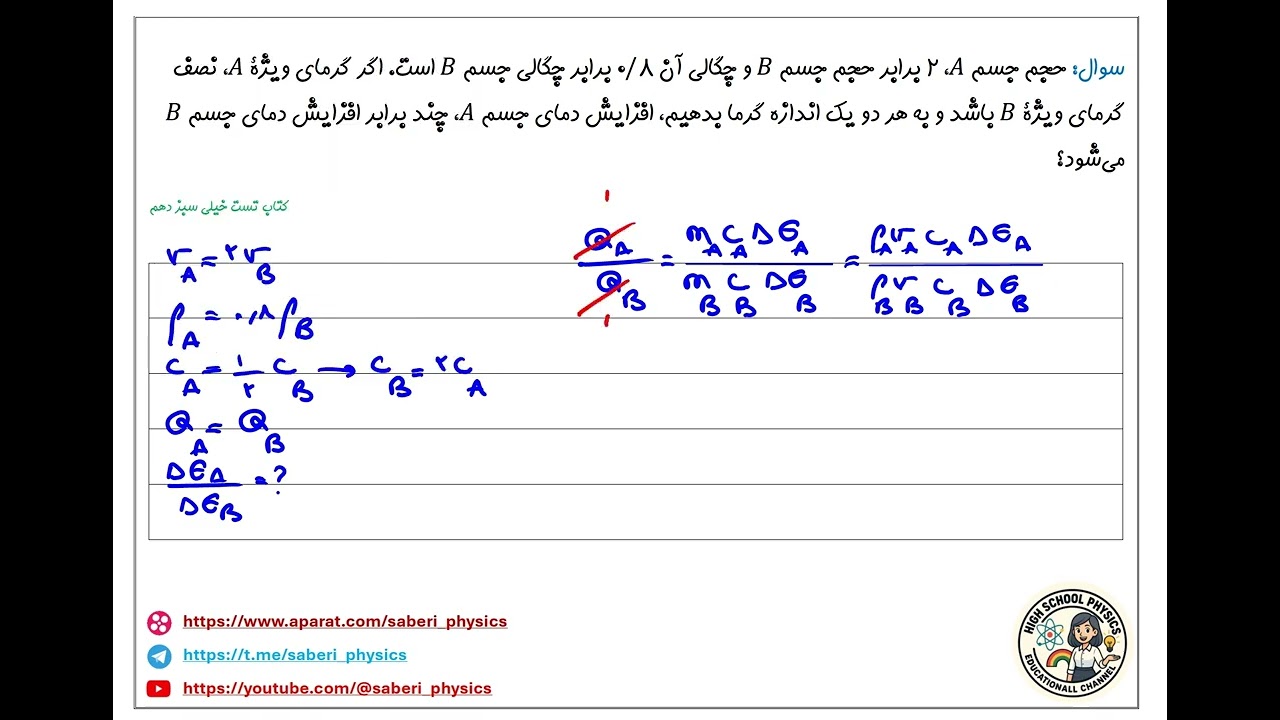 سوال: حجم جسم A، ۲ برابر حجم جسم B و چگالی آن ۰/۸ برابر چگالی جسم B است. اگر گرمای ویژهٔ A، نصف
گرمای ویژهٔ B باشد و به هر دو یک اندازه گرما بدهیم، افزایش دمای جسم A، چند برابر افزایش دمای جسم B
می‌شود؟
کتاب تست خیلی سبز دهم
V_A = ۲V_B
ρ_A = ۰,۸ρ_B
C_A = ۱/۲ C_B → C_B = ۲C_A
Q_A = Q_B
Δθ_A / Δθ_B = ?
۱ Q_A / Q_B ۱ = m_A C_A Δθ_A / m_B C_B Δθ_B = ρ_A V_A C_A Δθ_A / ρ_B V_B C_B Δθ_B
https://www.aparat.com/saberi_physics
https://t.me/saberi_physics
https://youtube.com/@saberi_physics
HIGH SCHOOL PHYSICS
EDUCATIONALL CHANNEL